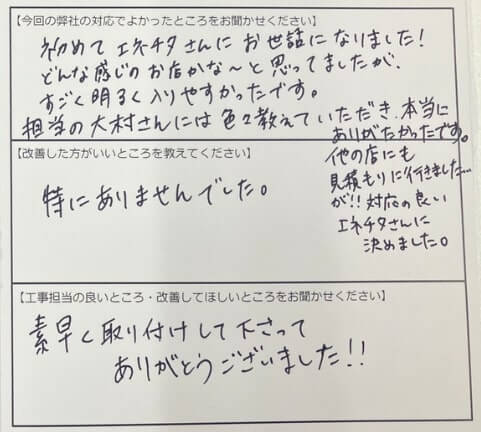 【今回の弊社の対応でよかったところをお聞かせください】
初めて エネチタさんに お世話に なりました!
どんな感じの お店かな〜と 思ってましたが、
すごく 明るく 入りやすかったです。
担当の 大村さんには 色々教えて いただき、本当に
ありがたかったです。
他の店にも
見積もりに行きました…
が!! 対応の良い
エネチタさんに
決めました。
【改善した方がいいところを教えてください】
特に ありませんでした。
【工事担当の良いところ・改善してほしいところをお聞かせください】
素早く 取り付けして 下さって
ありがとうございました!!